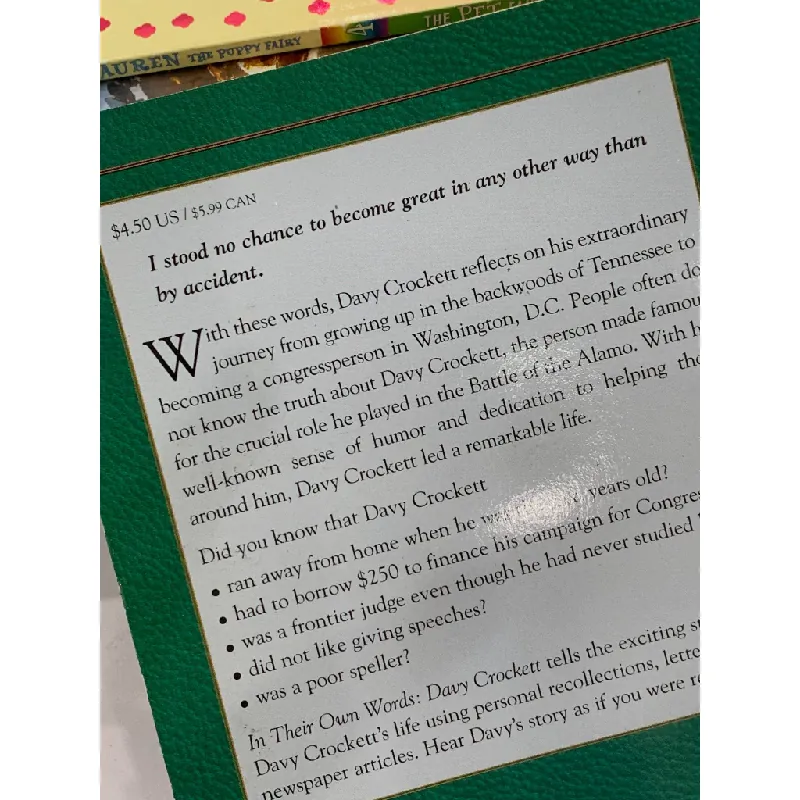 AUREN THE PUPPY FAIRY 4 THE PET
$4.50 US / $5.99 CAN
I stood no chance to become great in any other way than
by accident.
With these words, Davy Crockett reflects on his extraordinary
journey from growing up in the backwoods of Tennessee to
becoming a congressperson in Washington, D.C. People often do
not know the truth about Davy Crockett, the person made famou
for the crucial role he played in the Battle of the Alamo. With h
well-known sense of humor and dedication to helping tho
around him, Davy Crockett led a remarkable life.
Did you know that Davy Crockett
• ran away from home when he years old?
• had to borrow $250 to finance his campaign for Congre
• was a frontier judge even though he had never studied
• did not like giving speeches?
• was a poor speller?
In Their Own Words: Davy Crockett tells the exciting s
Davy Crockett's life using personal recollections, lette
newspaper articles. Hear Davy's story as if you were r